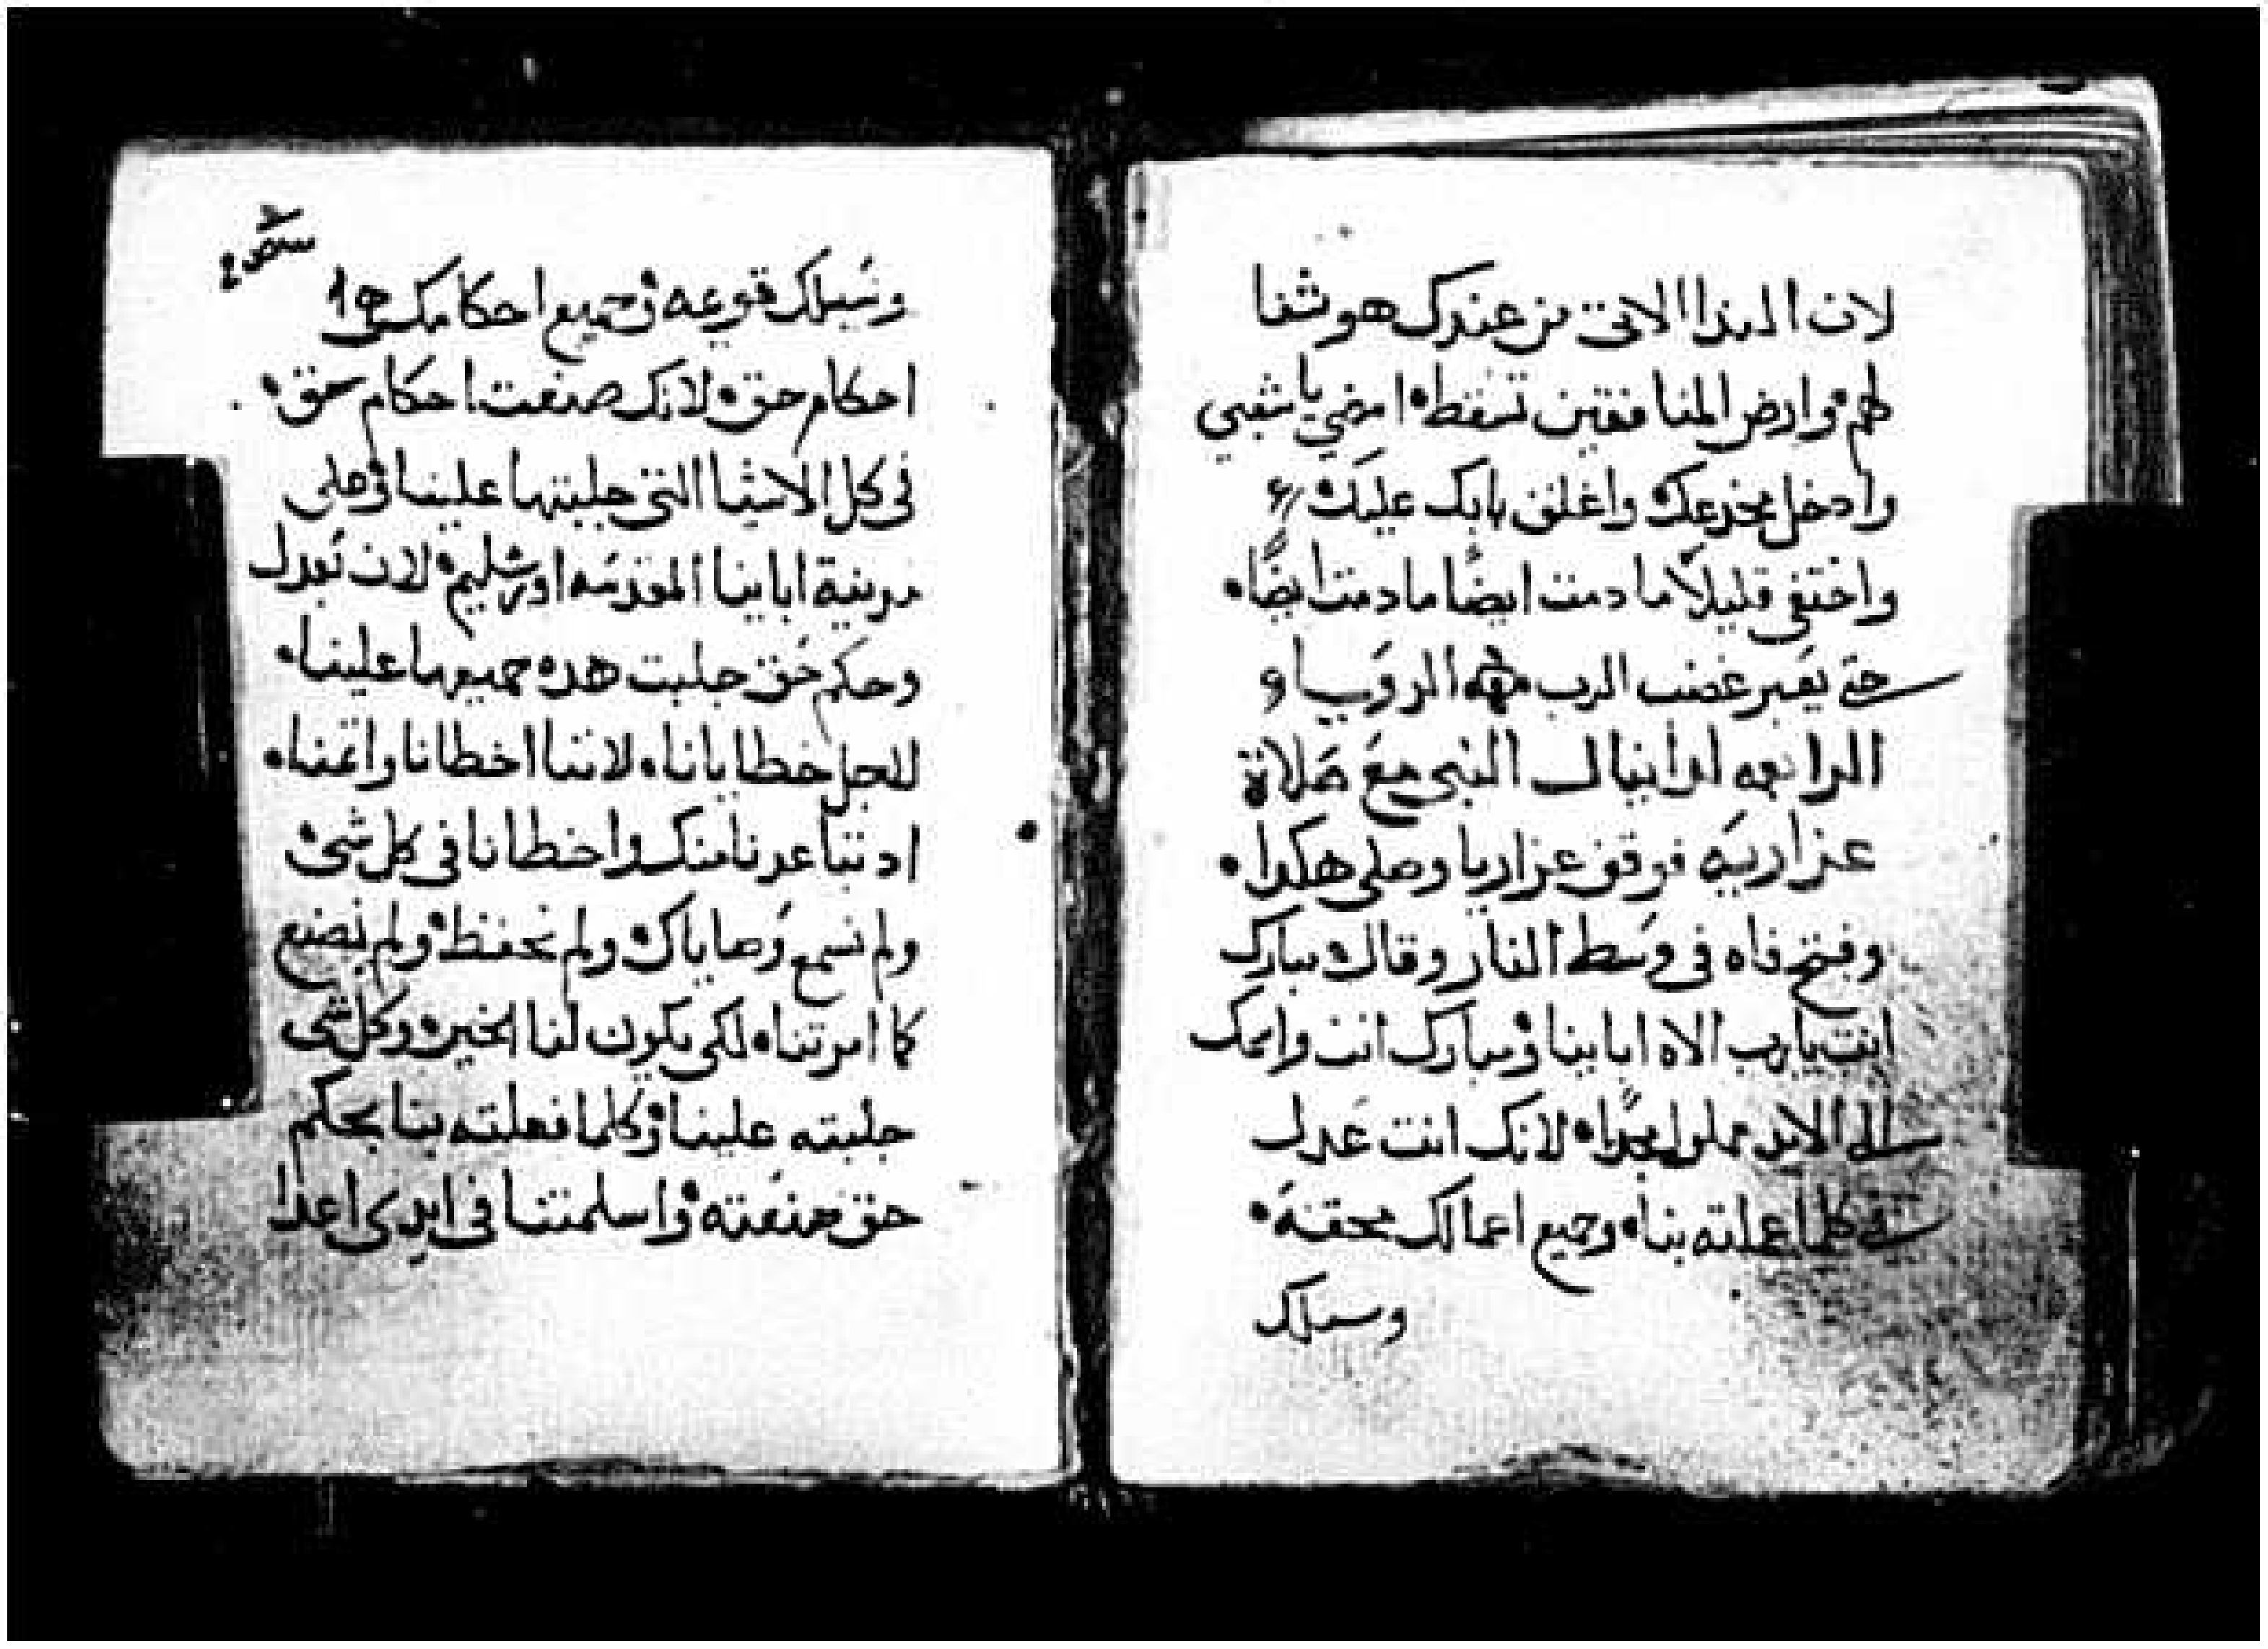 لان الندا الاتى من عندك هو شفا
لهم • وارض المنافقين تسقط • امضي يا شعبي
وادخل مخدعك واغلق بابك عليك •
واختفى قليلاً ما دمت ايضًا ما دمت ايضًا •
حتى يعبر غضب الرب • الرويا
الرابعه لدانيال النبى مع صلاة
عزاريه فوقف عزاريا وصلى هكدا •
وفتح فاه فى وسط النار وقال • مبارك
انت يارب الاه اباينا • ومبارك انت واسمك
الى الابد مملو مجدا • لانك انت عدل
فى كلما عملته بنا • وجميع اعمالك محقنه •
وسبلك
وسبلك قويمه • وجميع احكامك
احكام حق • لانك صنعت احكام حق •
فى كل الاشيا التى جلبتها علينا • وعلى
مدينة اباينا المقدسه اورشليم • لان بعدل
وحكم حق جلبت هده جميعها علينا •
لاجل خطايانا • لاننا اخطانا واتمنا •
اد تباعدنا منك • واخطانا فى كل شى •
ولم نسمع وصاياك • ولم نحفظ • ولم نصنع
كما امرتنا • لكى يكون لنا الخير • وكل شى
جلبته علينا • وكلما فعلته بنا بحكم
حق صنعته • واسلمتنا فى ايدى اعدا